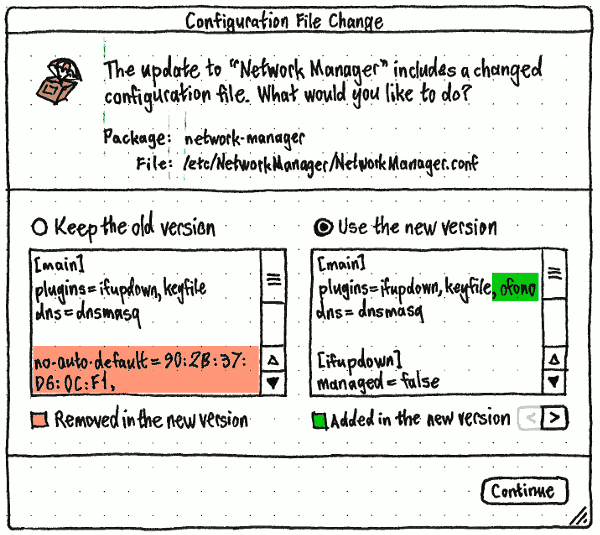 Configuration File Change
The update to "Network Manager" includes a changed
configuration file. What would you like to do?
Package: network-manager
File: /etc/NetworkManager/NetworkManager.conf
Keep the old version
[main]
plugins=ifupdown, keyfile
dns=dnsmasq
no-auto-default=90:2B:37:
D6:0C:F1,
Removed in the new version
Use the new version
[main]
plugins=ifupdown, keyfile, ofono
dns=dnsmasq
[ifupdown]
managed=false
Added in the new version < >
Continue